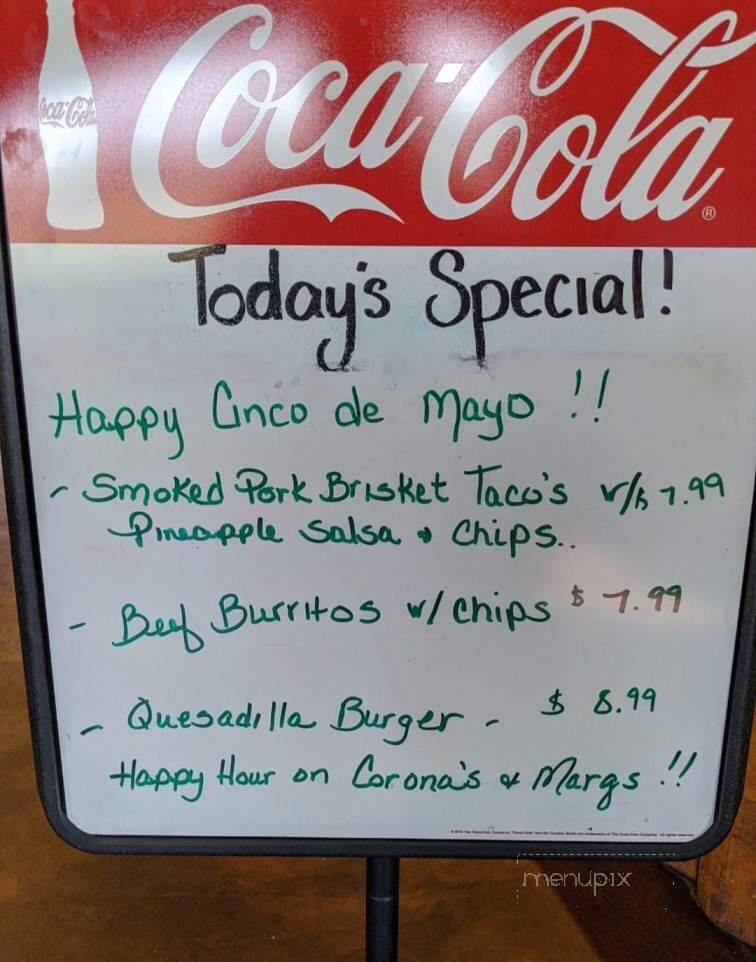 Coca-Cola
Coca-Cola ®
Today's Special!
Happy Cinco de Mayo !!
- Smoked Pork Brisket Taco's w/ $ 7.99
Pineapple Salsa & Chips..
- Beef Burritos w/ chips $ 7.99
- Quesadilla Burger - $ 8.99
Happy Hour on Corona's & Margs !!
menupix